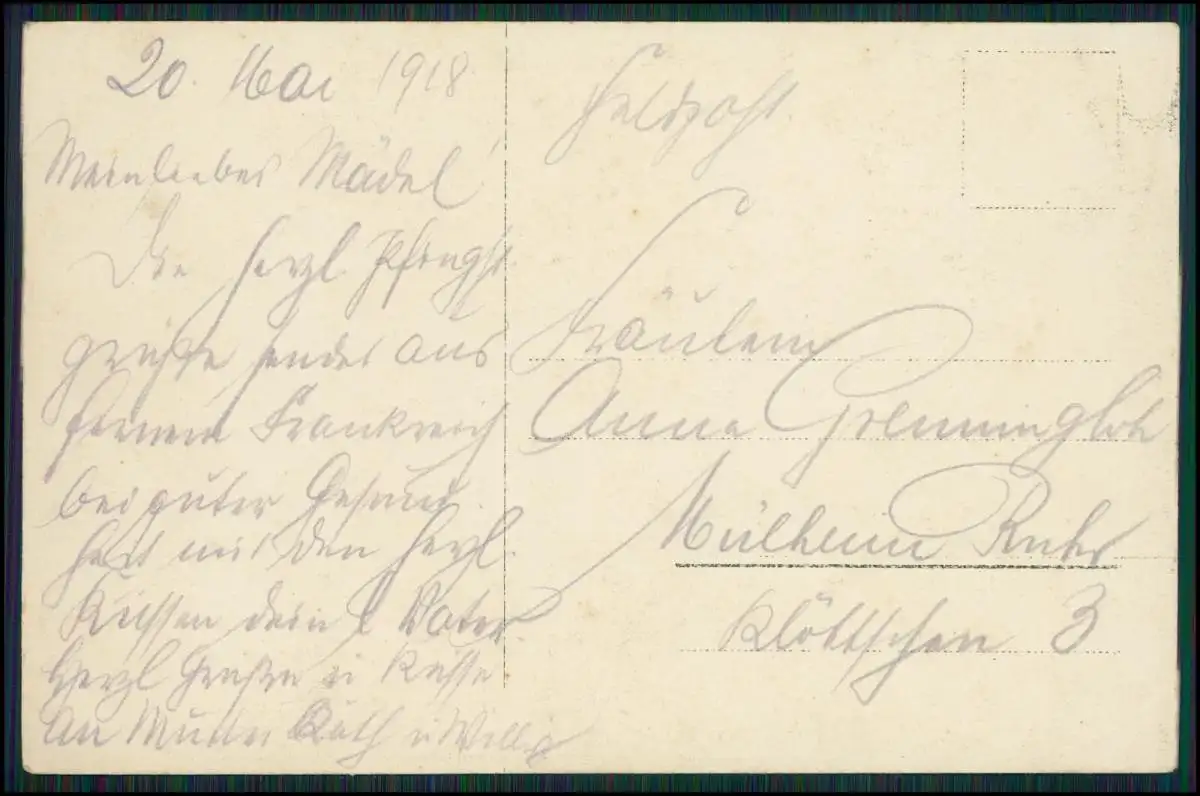 20. Mai 1918
Mein liebes Mädel!
Die herzl. Pfingst
grüße sendet aus
fernem Frankreich
bei guter Gesund
heit mit den herzl.
Küssen dein l Vater.
Herzl Grüßen u Küsse
an Mutter Käth u Willy
Feldpost
Fräulein
Anna
Mülheim Ruhr
Klöttschen 3